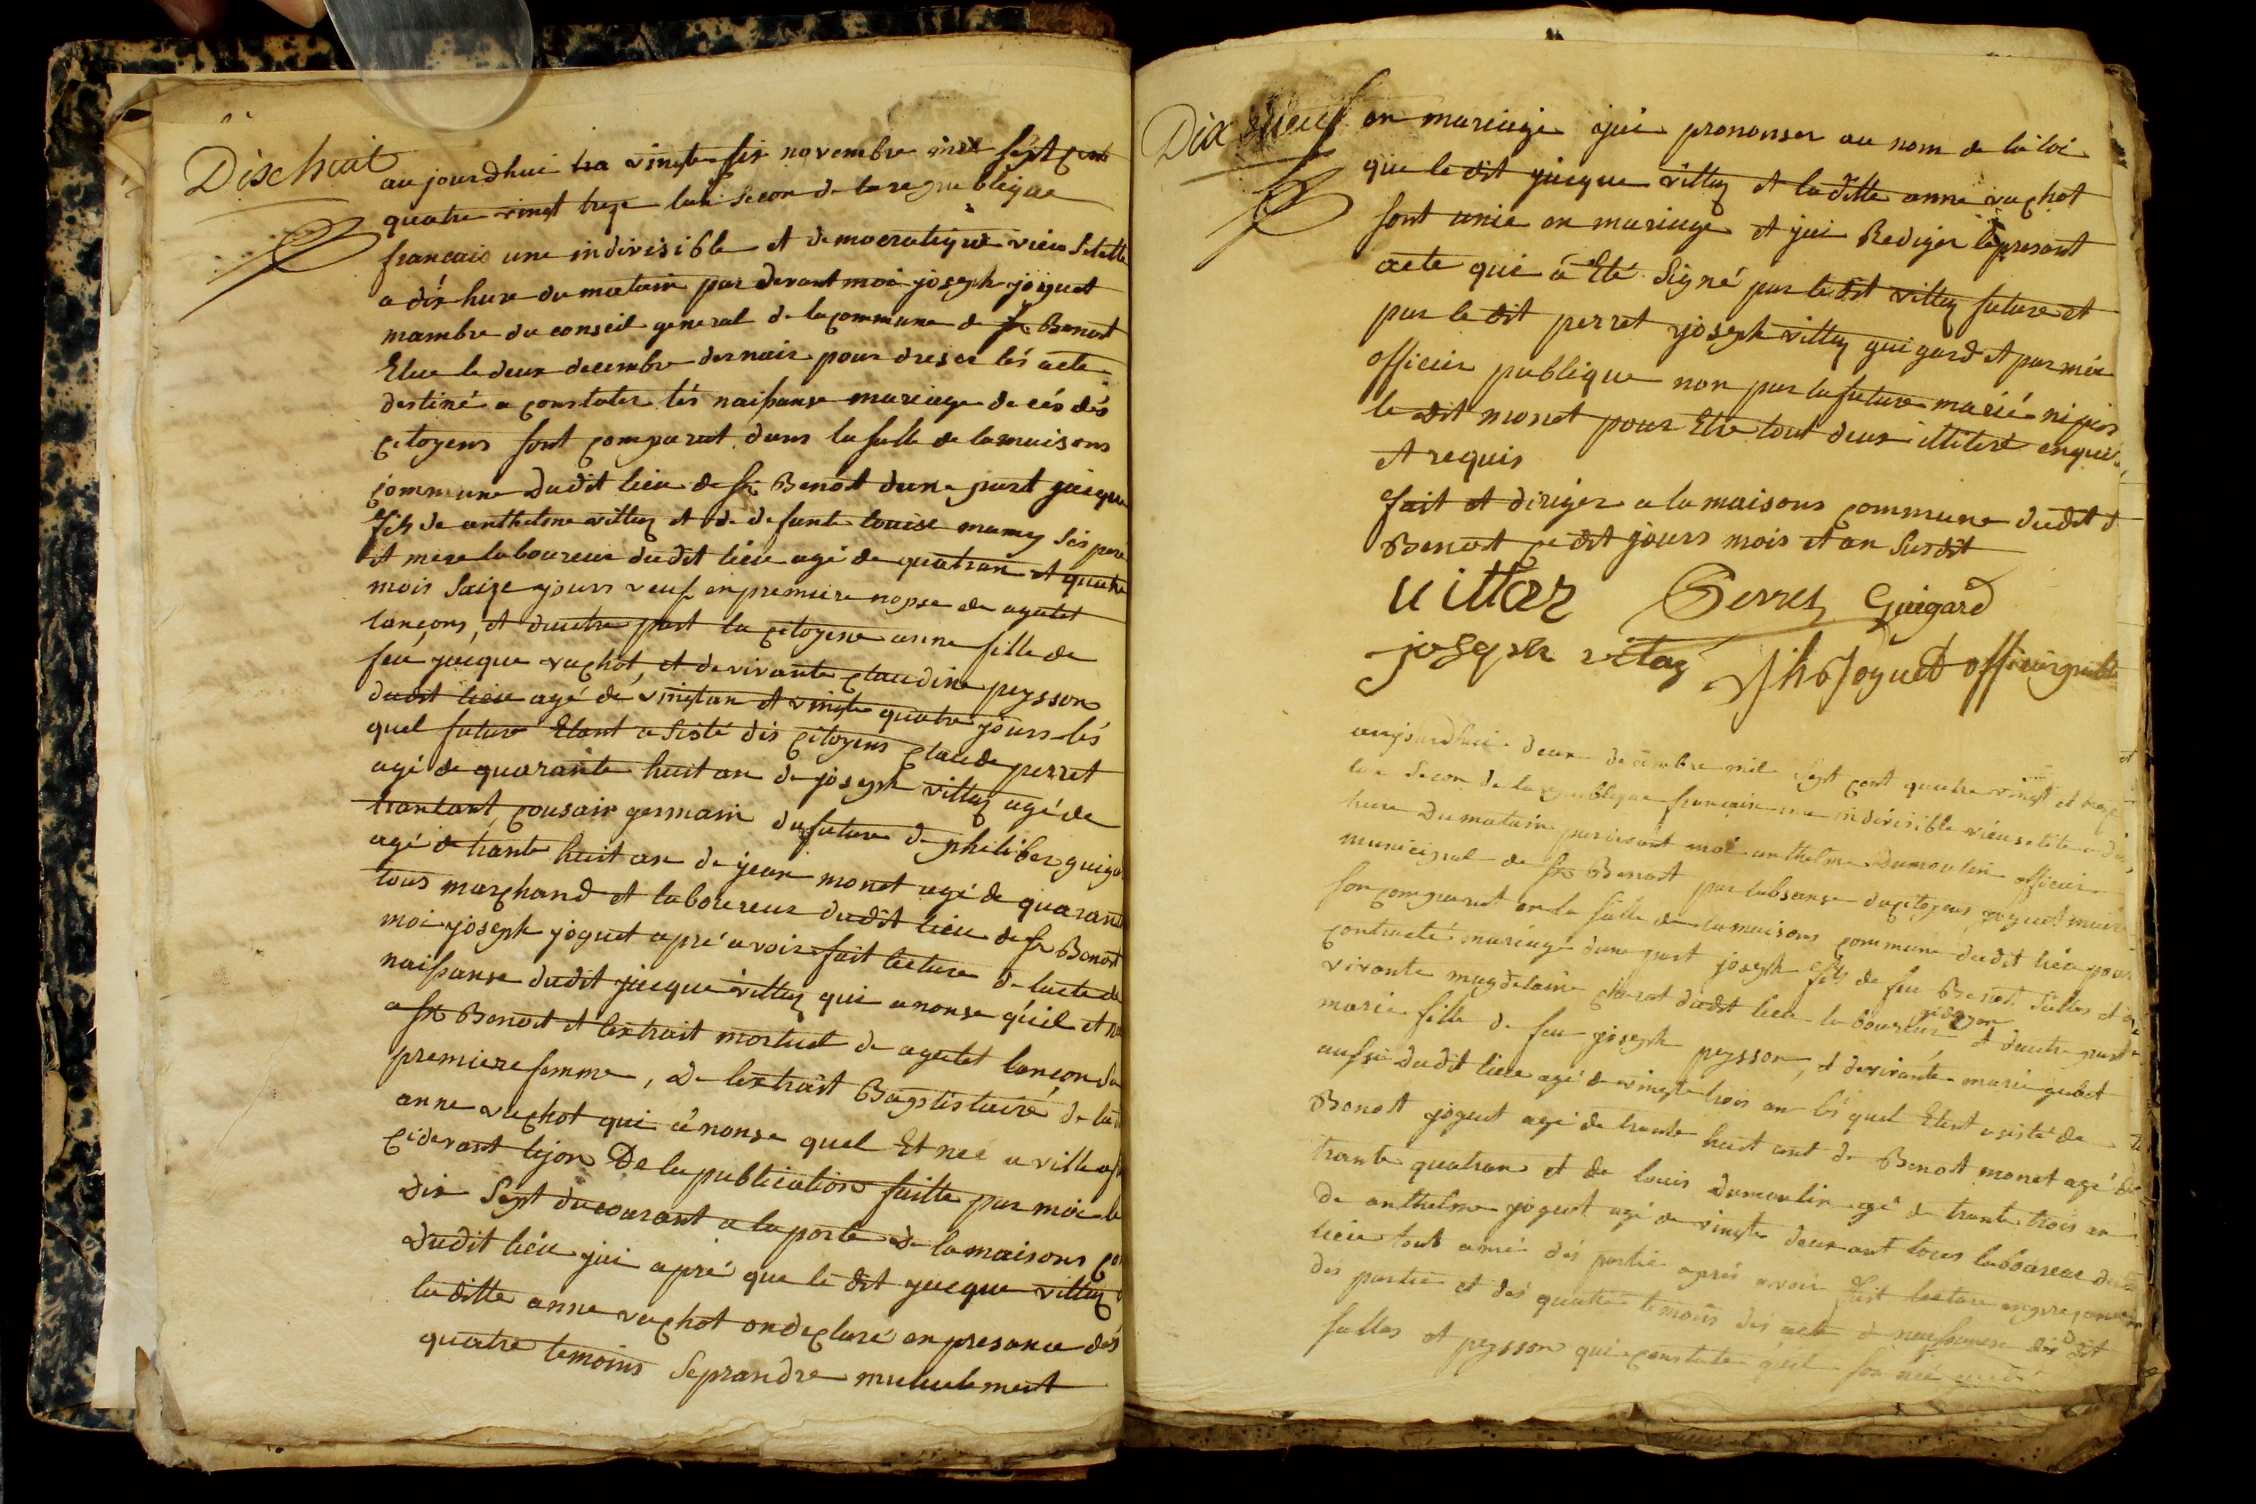 Dixhuit
aujourdhui vingte six novembre mil sept cent
quatre vingt treze lan secon de la republique
francais une indivisible et democratique vieu stille
a dix hure du matain par devant moi joseph joguet
mambre du conseil general de la commune de st Benoit
Elue le deux decembre dernair pour dreser les acte
destiné a constater lés naissanse mariage de cés dés
citoyens sont comparut dans la salle de la maisons
commune dudit lieu de st Benoit dune part jacque
fils de anthelme vittoz et de defunte louise mamy ses pere
et mere laboureur dudit lieu agé de quatran et quatre
mois saize jours veuf en premiere nopse de agatet
lançons, et dautre part la citoyene anne fille de
feu jacque vachot, et de vivante claudine peysson
dudit lieu agé de vingtan et vingte quatre jours lés
quel future Etant asisté dés citoyens claude perret
agé de quarante huit an de joseph vittoz agé de
trantant cousair germain du future de philiber guiga
agé de trante huit an de jean monet agé de quarante
tous marchand et laboureur dudit lieu de st Benoit
moi joseph joguet apré avoir fait lecture de lacte de
naissanse dudit jacque vittoz qui anonse quil et né
a st Benoit et lextrait mortuel de agatet lançon sa
premiere femme, de lextrait Baptistaire de ladi
anne vachot qui énonse quel Et neé a ville
cidevant lijon De la publication faitte par moi le
dix sept du courant a la porte de la maisons co
dudit lieu jai apré que le dit jacque vittoz
la ditte anne vachot on declaré en presance dés
quatre temoins se prandre mutuelement
Dix neuf
en mariage jai prononser au nom de la loi
que le dit jacque vittoz et la ditte anne vachot
sont unie en mariage et jai Rediger le presant
acte qui á Eté signé par le dit vittoz future et
par le dit perret joseph vittoz guigard et par moi
officier publique non par la future marié ni par
le dit monet pour Etre tout deux illiteré enquis
et requis
fait et diriger a la maisons commune dudit st
Benoit ce dit jours mois et an susdit
vittoz Perret Guigard
joseph vitoz jh Joguet officier public
aujourdhui deux decembre mil sept cent quatre vingt et treze
lan secon de la republique francaise une indivisible vieu stile a dix
hure du matain par devant moi anthelme dumoulin officier
municipal de st Benoit par labsanse du citoyens joguet maire
son comparut en la salle de la maisons commune dudit lieu pour
contracté mariage dune part joseph fils de feu Benoit sallas et de
vivante magdelaine clerat dudit lieu laboureur et dautre part
marie fille de feu joseph peysson, et de vivante marie gubet
aussi dudit lieu agé de vingte trois an lés quel Etent asisté de
Benoit joguet agé de trante huit ant de Benoit monet agé de
trante quatran et de louis dumoulin agé de trante trois an
de anthelme joguet agé de vingte deux ant tous laboureur dudit
lieu tout amie dés partie aprés avoir fait lecture en presance
des partie et dés quatre temoins dés acte de naissanse dés dit
sallas et peysson qui constate quil son né